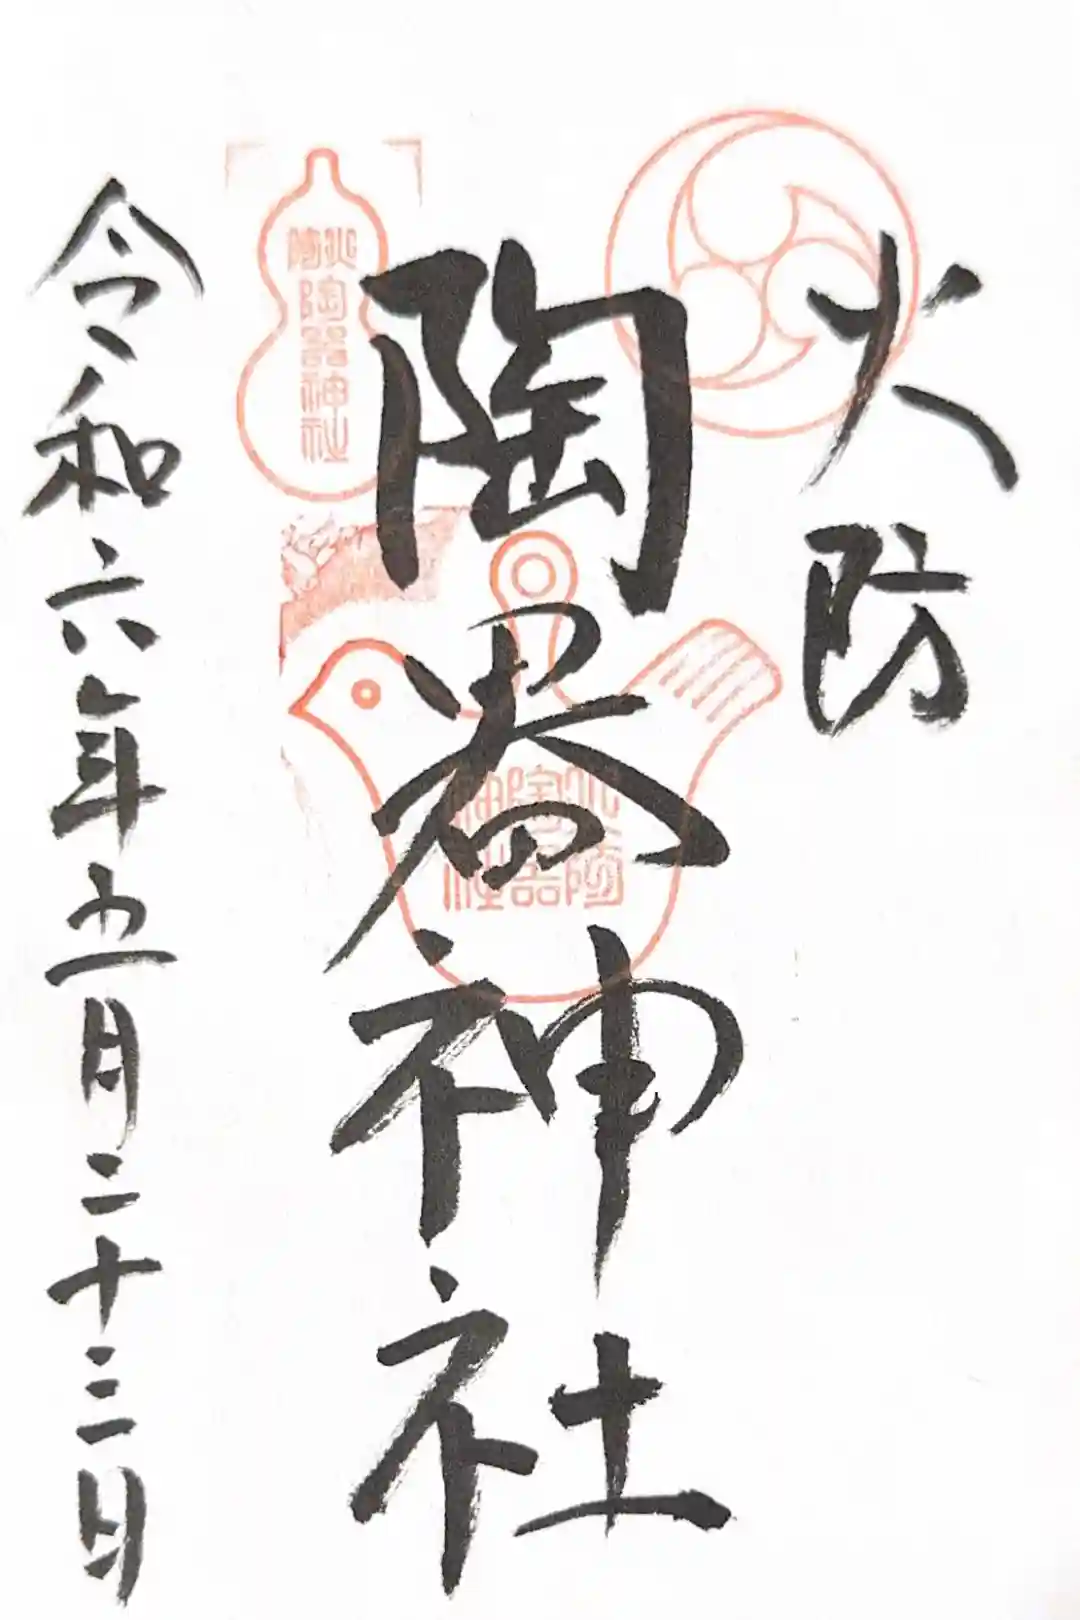 火防
陶器神社
令和六年五月二十三日
火防
陶器神社
火防
陶器
神社